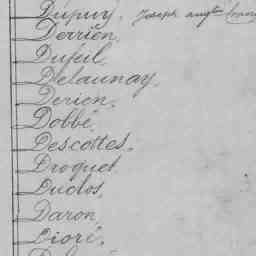 Dupuy, Joseph
Derrien,
Dufeil,
Delaunay,
Derion,
Dobbé,
Descottes,
Droguet
Duclos,
Daron,
Dioré,